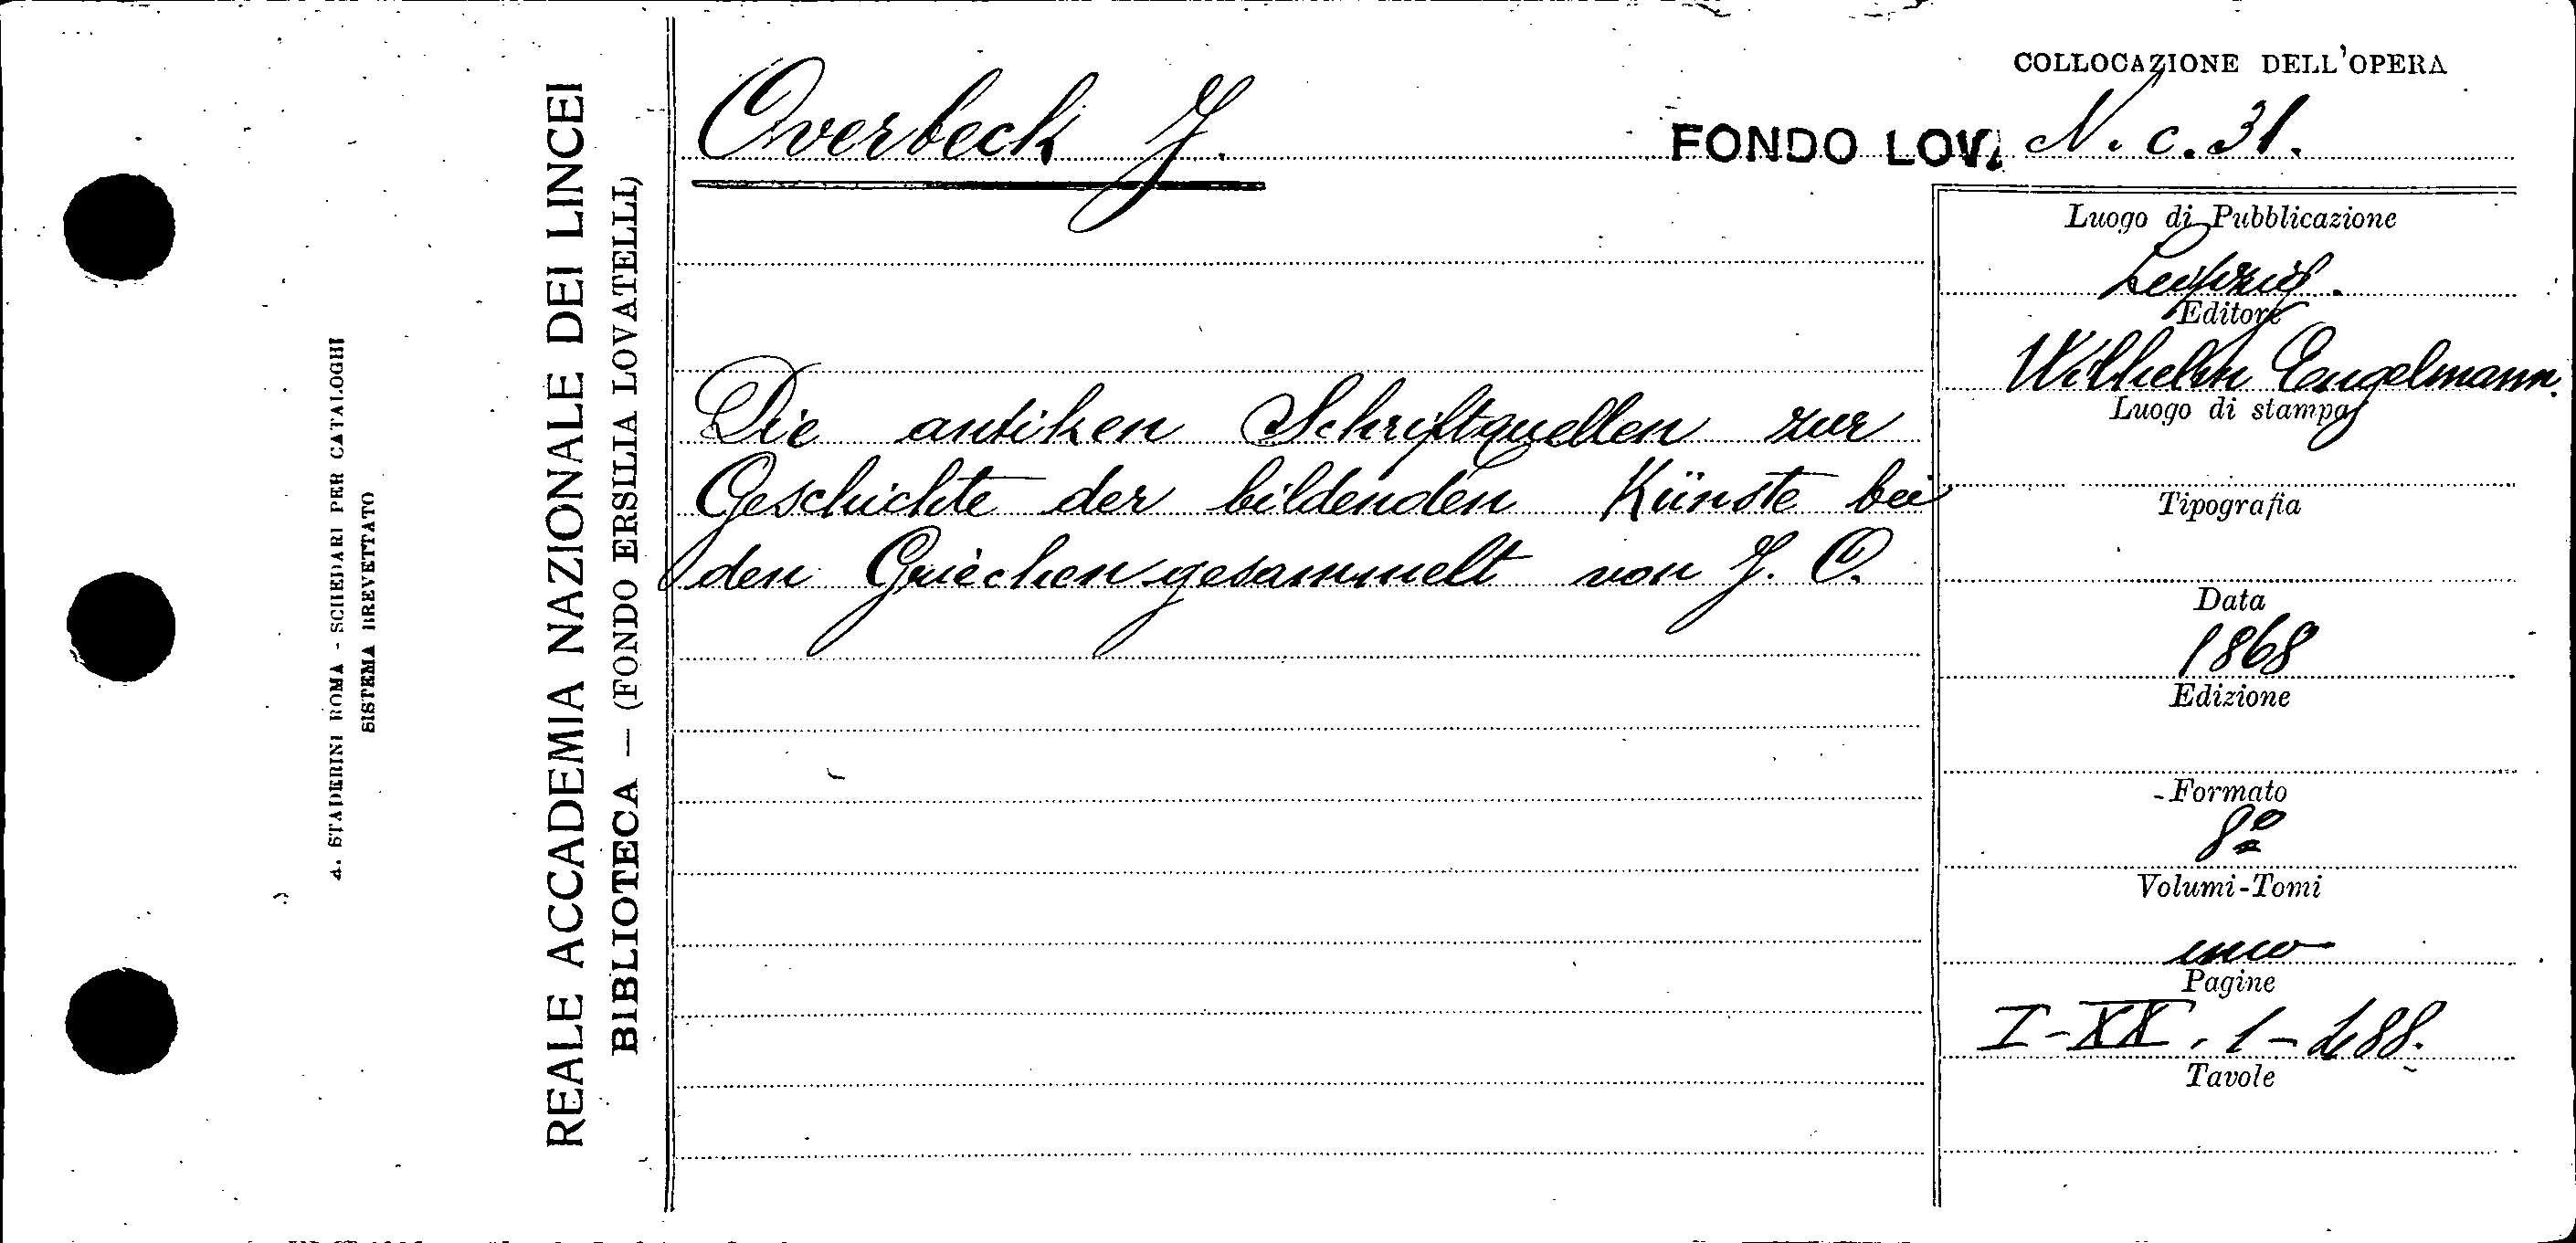 A. STADERINI ROMA - SCHEDARI PER CATALOGHI
SISTEMA BREVETTATO
REALE ACCADEMIA NAZIONALE DEI LINCEI
BIBLIOTECA — (FONDO ERSILIA LOVATELLI)
Overbeck J.
Die antiken Schriftquellen zur
Geschichte der bildenden Künste bei
den Griechen gesammelt von J. O.
COLLOCAZIONE DELL'OPERA
FONDO LOV. N. c. 31.
Luogo di Pubblicazione
Leipzig.
Editore
Wilhelm Engelmann.
Luogo di stampa
Tipografia
Data
1868
Edizione
Formato
8º
Volumi-Tomi
uno
Pagine
I-XX, 1-488.
Tavole